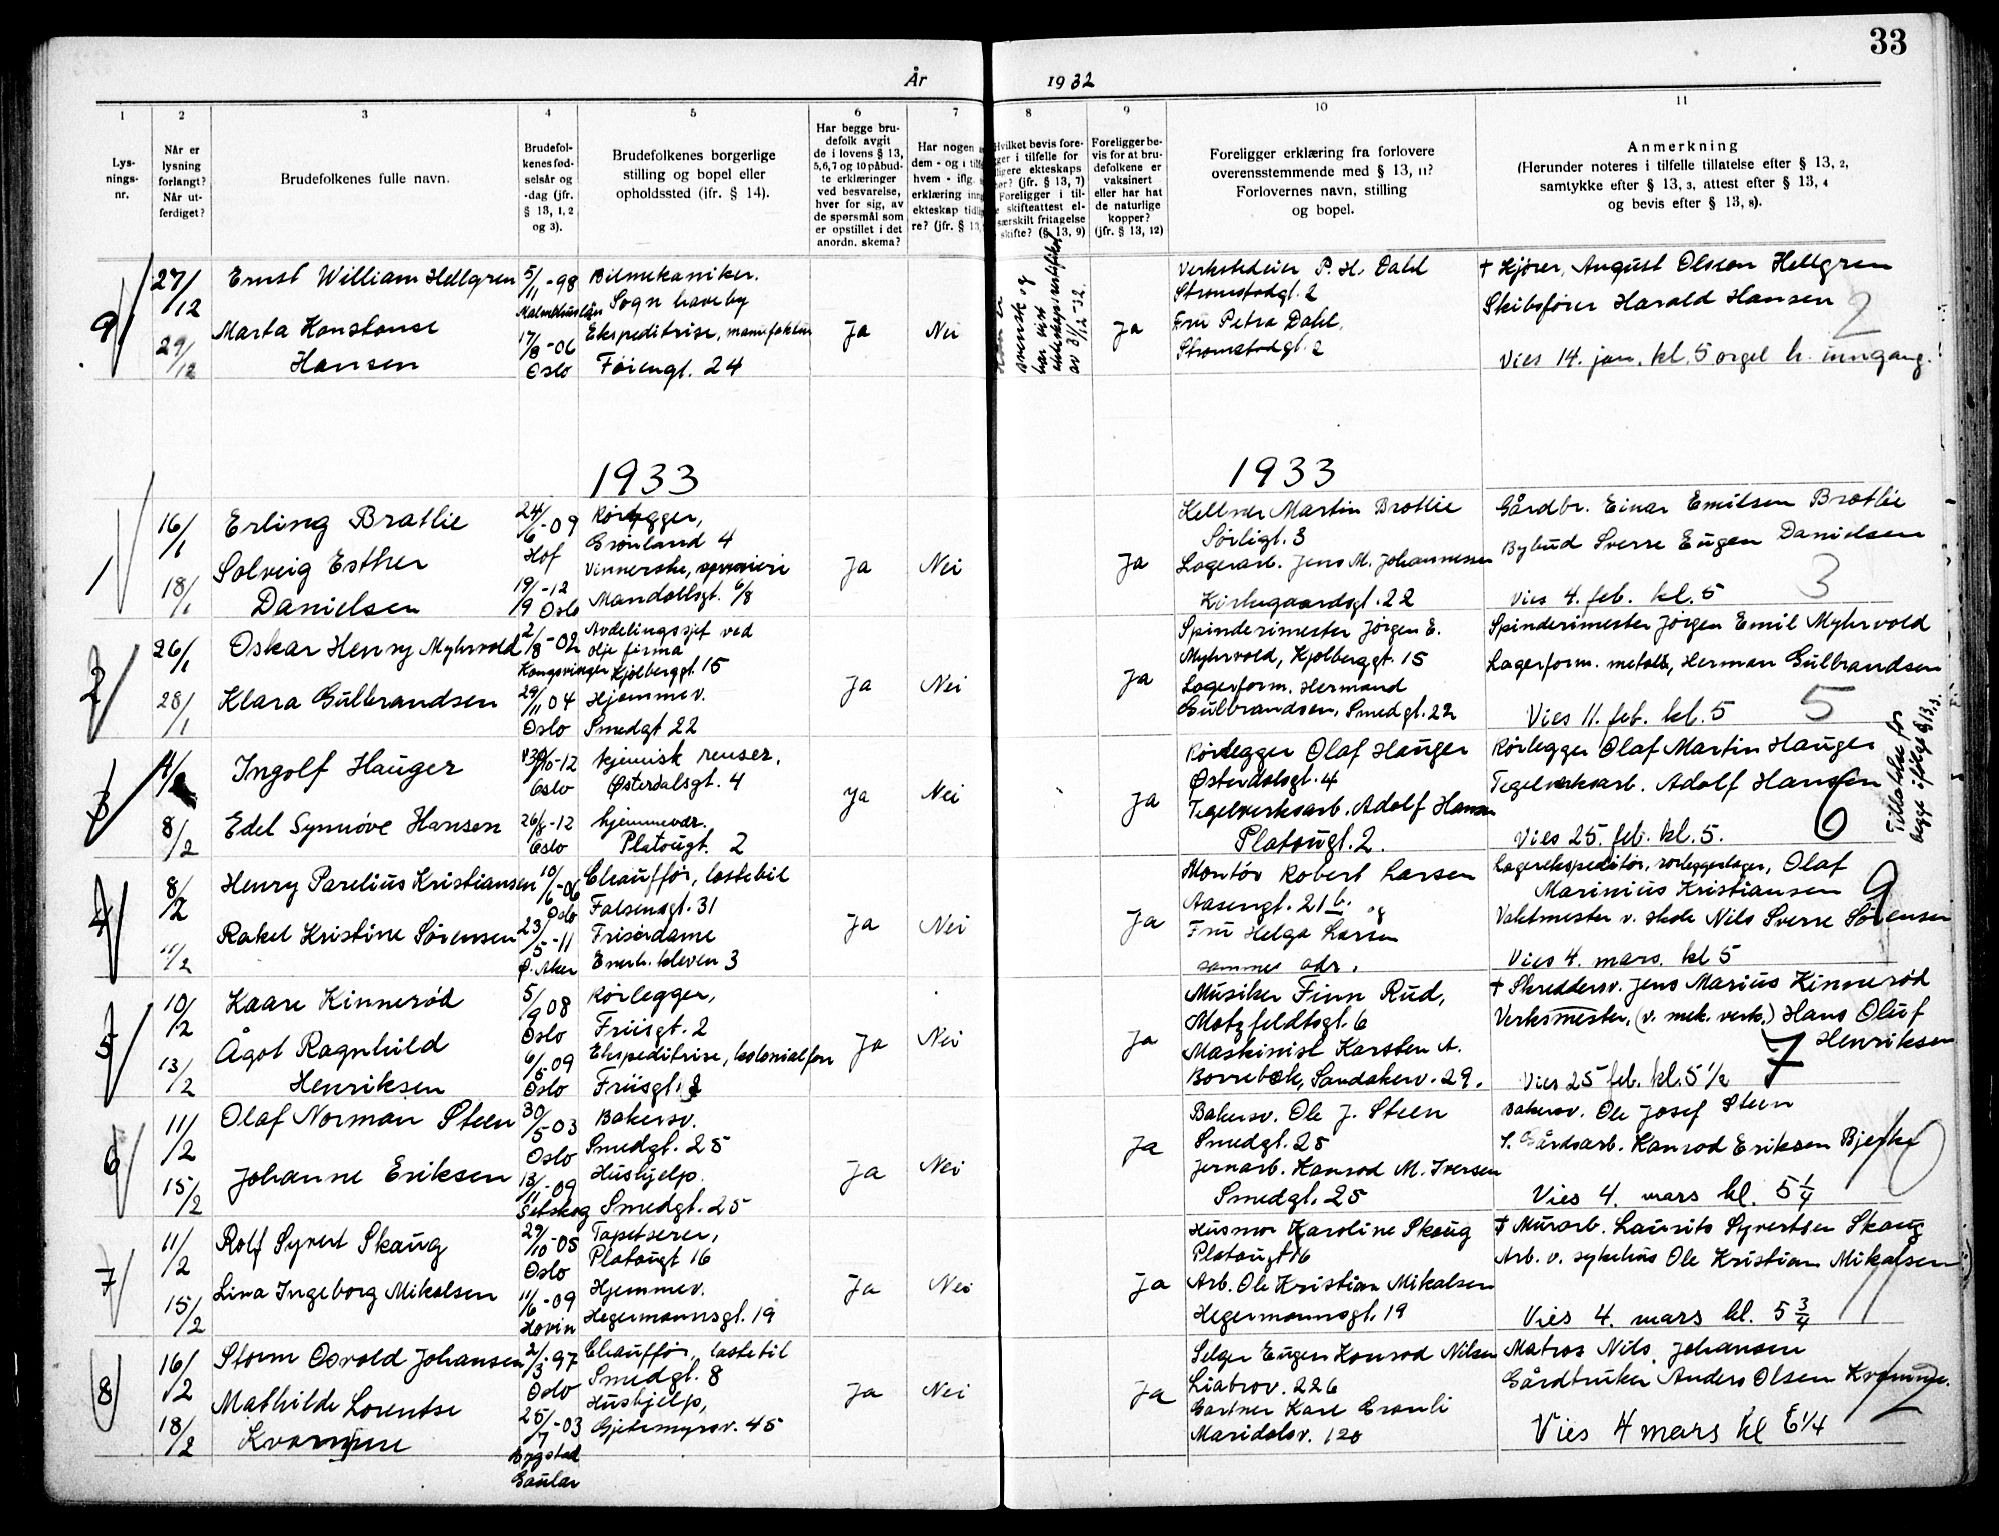 33
År 1932
1 2 3 4 5 6 7 8 9 10 11
Lys-
nings-
nr.
Når er
lysning
forlangt?
Når ut-
ferdiget?
Brudefolkenes fulle navn.
Brudefol-
kenes fød-
selsår og
-dag (jfr.
§ 13, 1, 2
og 3).
Brudefolkenes borgerlige
stilling og bopel eller
opholdssted (ifr. § 14).
Har begge bru-
defolk avgit
de i lovens § 13,
5,6,7 og 10 påbud-
te erklæringer
ved besvarelse,
hver for sig, av
de spørsmål som
er opstillet i det
anordn. skema?
Har nogen
dem - og i
hvem - iflg.
erklæring
ekteskap
re? (jfr. § 13,
Hvilket bevis fore-
i tilfelle for
ekteskaps
(jfr. § 13, 7)
Foreligger i til-
skifteattest el-
særskilt fritagelse
skifte? (§ 13, 9)
Foreligger be-
vis for at bru-
defolkene er
vaksinert
eller har hat
de naturlige
kopper?
(jfr. § 13, 12)
Foreligger erklæring fra forlovere
overensstemmende med § 13, 11?
Forlovernes navn, stilling
og bopel.
Anmerkning
(Herunder noteres i tilfelle tillatelse efter § 13, 2,
samtykke efter § 13, 3, attest efter § 13, 4
og bevis efter § 13, 8).
9
27/12
29/12
Ernst William Hellgren
Marta Konstanse
Hansen
5/11-98
Malmøhuslän
17/8-06
Oslo
Bilmekaniker.
Sogn haveby
Ekspeditrise, manufaktur
Føiengt. 24
Ja
Nei
svensk og
har vist
av 31/12-32.
Ja
Verkstedeier P. H. Dahl
Strømstadgt. 2
Fru Petra Dahl,
Strømstadgt. 2
August Olsson Hellgren
Skibsfører Harald Hansen
2
Vies 14. jan. kl. 5 orgel h. inngang.
1933
1933
1
16/1
18/1
Erling Bratlie
Solveig Esther
Danielsen
24/6-09
Hof
19/9-12
Oslo
Rørlegger,
Grønland 4
Vinnerske, spinneri
Mandallsgt. 6/8
Ja
Nei
Ja
Kellner Martin Bratlie
Sørligt. 3
Lagerarb. Jens M. Johannessen
Kirkegaardsgt. 22
Gårdbr. Einar Emilsen Bratlie
Bybud Sverre Eugen Danielsen
3
Vies 4. feb. kl. 5
2
26/1
28/1
Oskar Henry Myhrvold
Klara Gulbrandsen
2/8-02
Kongsvinger
29/11 04
Oslo
Avdelingssjef ved
olje firma
Kjølberggt. 15
Hjemmev.
Smedgt 22
Ja
Nei
Ja
Spinderimester Jørgen E.
Myhrvold, Kjølberggt. 15
Lagerform. Hermand
Gulbrandsen, Smedgt. 22
Spinderimester Jørgen Emil Myhrvold
Lagerform. metall, Herman Gulbrandsen
5
Vies 11. feb. kl. 5
3
8/2
Ingolf Hauger
Edel Synnøve Hansen
Oslo
26/8-12
Oslo
Kjemisk renser,
Østerdalsgt. 4
hjemmevær.
Platougt. 2
Ja
Nei
Ja
Rørlegger Olaf Hauger
Østerdalsgt. 4
Teglverksarb. Adolf Hansen
Platougt. 2.
Rørlegger Olaf Martin Hauger
Tegelverksarb. Adolf Hansen
6
Vies 25. feb. kl. 5.
Tillatelse for
begge ifølge § 13.3.
4
8/2
11/2
Henry Parelius Kristiansen
Rakel Kristine Sørensen
10/6-06
Oslo
23/5-11
Ø. Aker
Chauffør, lastebil
Falsensgt. 31
Friserdame
Enerh. kleven 3
Ja
Nei
Ja
Montør Robert Larsen
Aasengt. 21 b. og
Fru Helga Larsen
samme adr.
Lagerekspeditør, rørleggerlager, Olaf
Marinius Kristiansen
9
Vaktmester v. skole Nils Sverre Sørensen
Vies 4. mars. kl 5
5
10/2
13/2
Kaare Kinnerød
Ågot Ragnhild
Henriksen
5/9 08
Oslo
6/5-09
Oslo
Rørlegger,
Friisgt. 2
Ekspeditrise, kolonialforr
Friisgt. 2
Ja
Nei
Ja
Musiker Finn Rud,
Motzfeldtsgt. 6
Maskinist Karsten A.
Borrebæk, Sandakerv. 29.
† Skreddersv. Jens Marius Kinnerød
Verksmester, (v. mek. verk.) Hans Oluf
Henriksen
7
Vies 25 feb. kl. 5 1/2
6
11/2
15/2
Olaf Norman Steen
Johanne Eriksen
30/5-03
Oslo
13/11-09
Setskog
Bakersv.
Smedgt. 25
Hushjelp.
Smedgt. 25
Ja
Nei
Ja
Bakersv. Ole J. Steen
Smedgt. 25
Jernarb. Konrad M. Iversen
Smedgt. 25
Bakersv. Ole Josef Steen
Gårdsarb. Konrad Eriksen Bjerke
10
Vies 4. mars kl. 5 1/4
7
11/2
15/2
Rolf Syvert Skaug
Lina Ingeborg Mikalsen
29/10-05
Oslo
11/6-09
Hovin
Tapetserer,
Platougt 16
Hjemmev.
Hegermannsgt. 19
Ja
Nei
Ja
Husmor Karoline Skaug
Platougt 16
Arb. Ole Kristian Mikalsen
Hegermannsgt. 19
† Murarb. Laurits Syvertsen Skaug
Arb. v. sykehus Ole Kristian Mikalsen
11
Vies 4. mars kl. 5 3/4
8
16/2
18/2
Storm Osvald Johansen
Mathilde Lorentse
2/3-97
Oslo
25/7-03
Bygstad
Gaular
Chauffør, lastebil
Smedgt. 8
Hushjelp,
Gjetemyrsv. 45
Ja
Nei
Ja
Selger Eugen Konrad Nilsen
Liabrov. 226
Gartner Kare Granli
Maridalsv. 120
Matros Nils Johansen
Gårdbruker Anders Olsen
12
Vies 4 mars kl 6 1/4